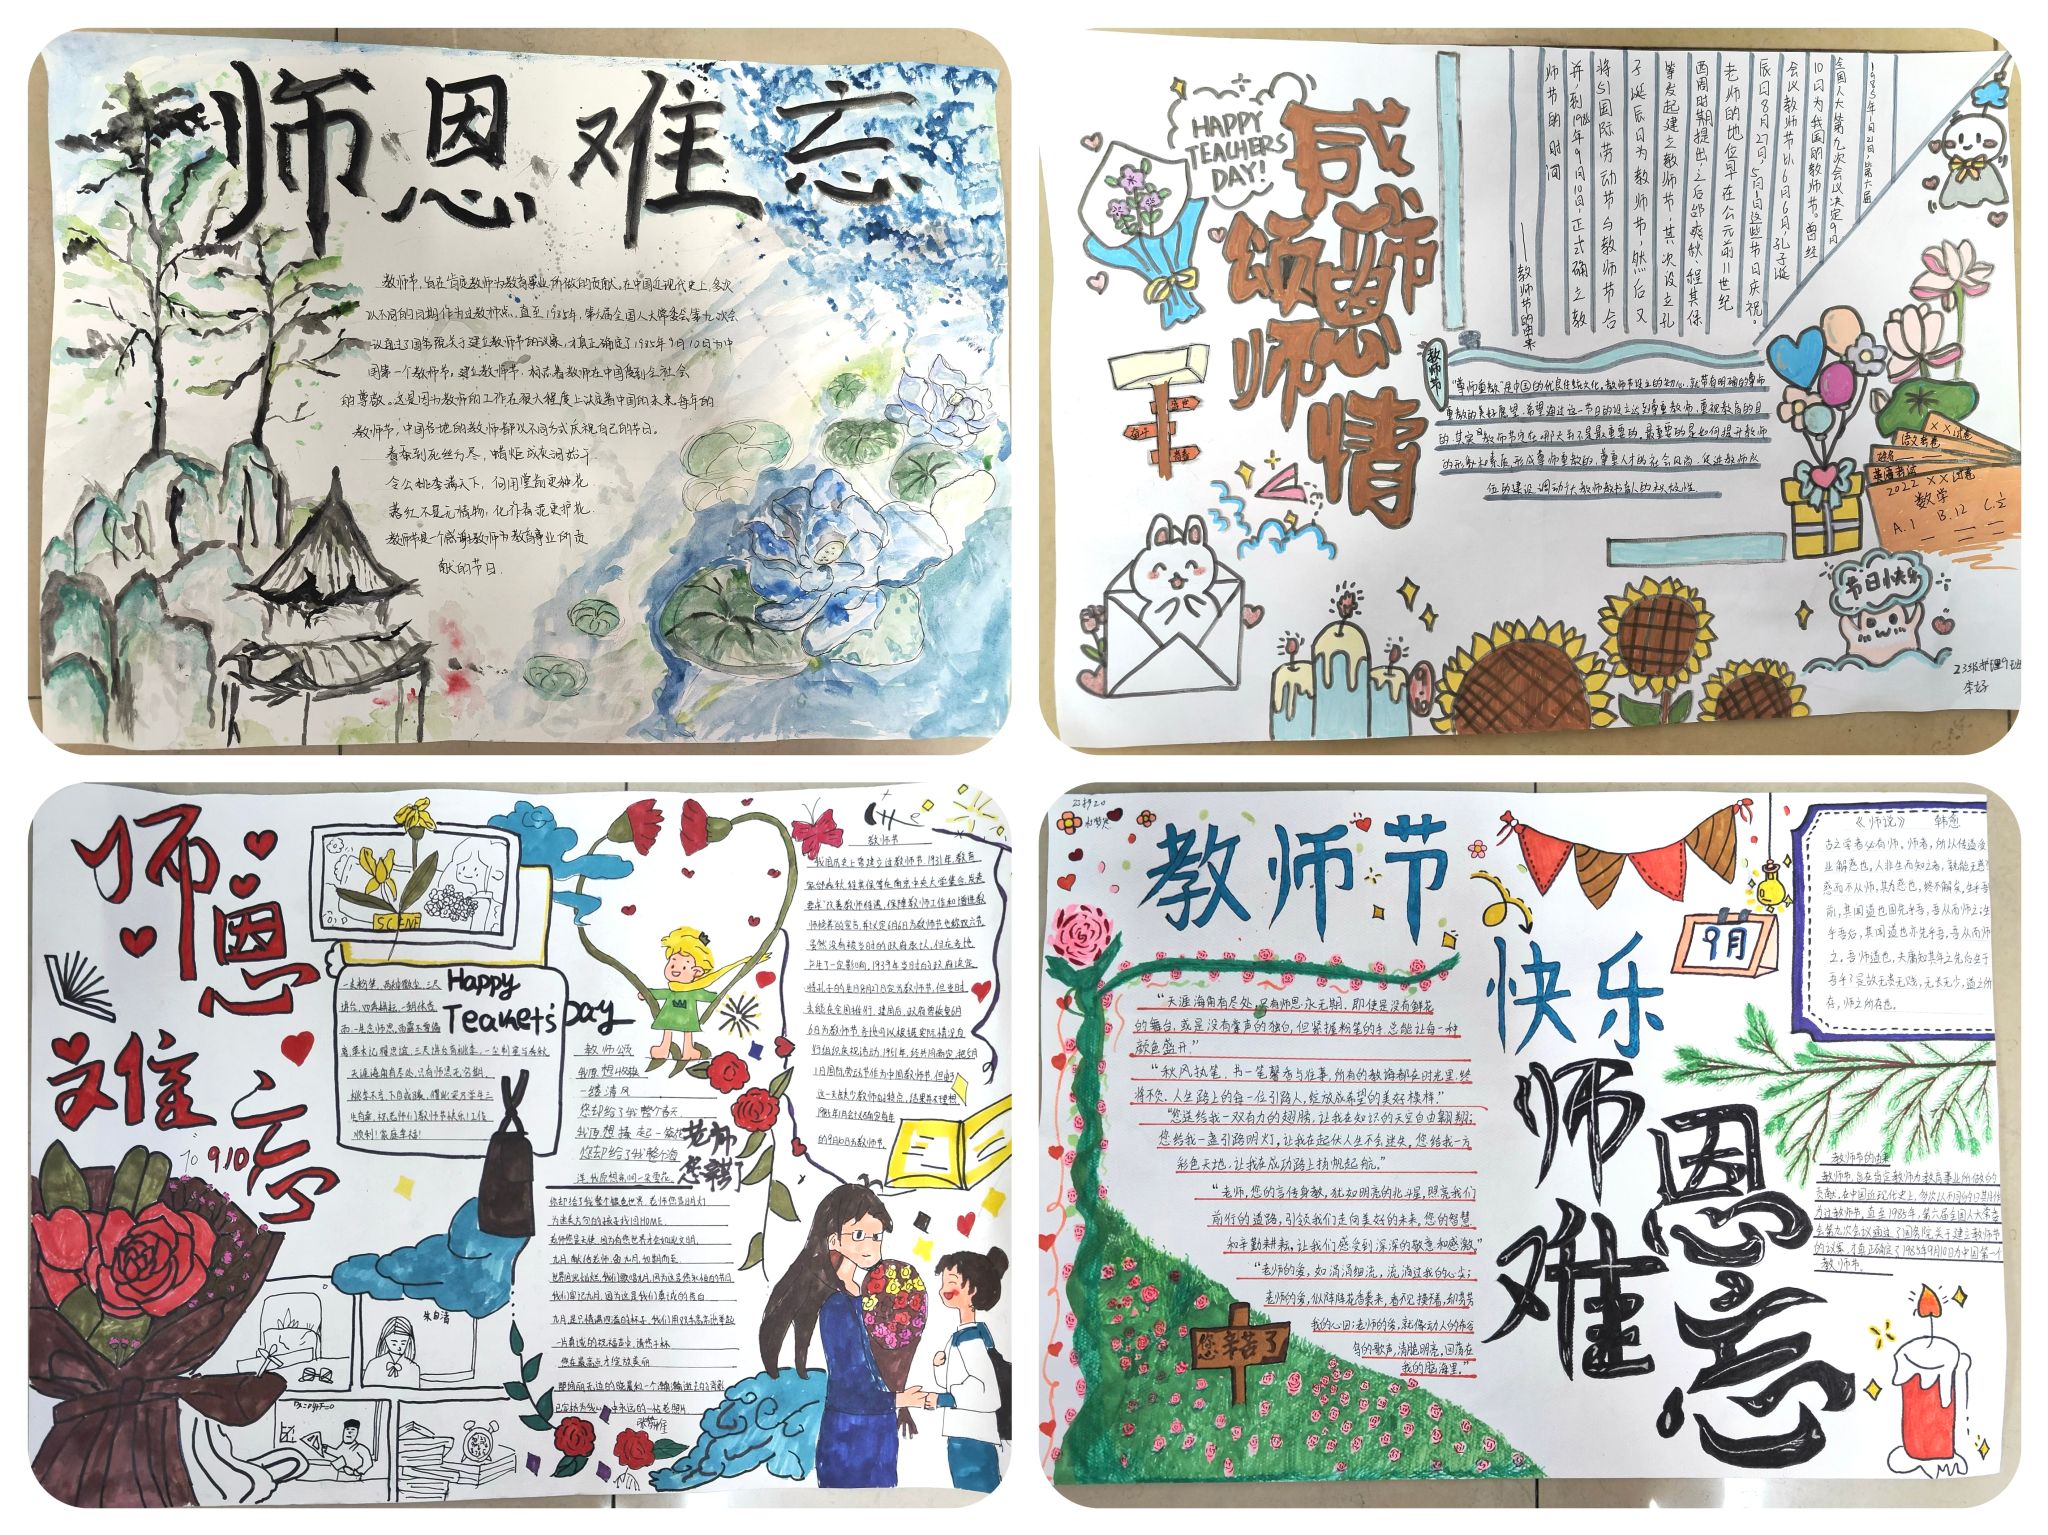 师恩难忘
教师节,旨在肯定教师为教育事业所做的贡献。在中国近现代史上,多次
以不同的日期作为过教师节。直至1985年,第六届全国人大常委会第九次会
议通过了国务院关于建立教师节的议案,才真正确定了1985年9月10日为中
国第一个教师节。建立教师节,标志着教师在中国受到全社会
的尊敬。这是因为教师的工作在很大程度上决定着中国的未来。每年的
教师节,中国各地的教师都以不同方式庆祝自己的节日。
春蚕到死丝方尽,蜡炬成灰泪始干
令公桃李满天下,何用堂前更种花
落红不是无情物,化作春泥更护花.
教师节是一个感谢教师为教育事业所贡
献的节日.
HAPPY
TEACHERS
DAY!
感师
颂恩
师情
1985年1月21日,第六届
全国人大第九次会议决定9月
10日为我国的教师节。曾经
会议教师节以6月6日,孔子诞
辰日8月27日,5月1日这些节日庆祝。
老师的地位早在公元前11世纪
西周时期提出,之后邰爽秋、程其保
等发起建立教师节,其次设立孔
子诞辰日为教师节,然后又
将51国际劳动节与教师节合
并,到1985年9月10日,正式确立教
师节的时间
——教师节的由来
教师节
"尊师重教"是中国的优良传统文化,教师节设立的初心,就带有明确的尊师
重教的美好愿望。希望通过这一节日的设立达到尊重教师、重视教育的目
的。其实"教师节定在哪天并不是最重要的,最重要的是如何提升教师
的形象和素质,形成尊师重教的,尊重人才的社会风尚,促进教师队
伍的建设,调动广大教师教书育人的积极性
语文试卷
××试卷
姓名
英语考试
2022××试卷
数学
A.1 B.12 C.½
节日快乐
23级护理9班
李好
师恩难忘
910
SCENE
Happy
Teakets' Day
一支粉笔,两袖微尘,三尺
讲台,四季耕耘
天涯海角有尽处,只有师恩无穷期,
顺利!家庭幸福!
朱自清
教师颂
我原想收获
一缕清风
您却给了我整个春天
我原想捧起一簇浪花
您却给了我整个海
洋,我原想亲吻一朵雪花
你却给了我整个银色世界,老师您是明灯
为迷失方向的孩子找回HOME
老师您是天使,因为有您世界才会如此文明,
九月,献给老师,面九月,如期而至
我们牢记九月,因为这是我们真诚的告白
一片真诚的祝福
您在最高点才绽放美丽
老师
您辛苦了
教师节
我国历史上曾建立过教师节,1931年,教育
家邰爽秋、程其保等在南京中央大学集会,发表
要求"改善教师待遇,保障教师工作和增进教
师修养的宣言,并议定6月6日为教师节也称双六节,
虽然没有被当时的政府承认,但在各地
产生了一定影响,1939年当时的政府决定
将孔子的生日8月27日定为教师节,但当时
未能在全国推行。建国后,政府曾恢复6月
6日为教师节,各地可以根据实际情况自
行组织庆祝活动,1951年,经共同商定,把5月
1日国际劳动节作为中国教师节,但由于
这一天缺少教师的特点,结果并不理想
1985年1月会议确定每年
的9月10日为教师节.
23护20
教师节
快乐
师恩难忘
9月
《师说》 韩愈
古之学者必有师。师者,所以传道受
业解惑也。人非生而知之者,孰能无惑?
惑而不从师,其为惑也,终不解矣。生乎吾
前,其闻道也固先乎吾,吾从而师之;生
乎吾后,其闻道也亦先乎吾,吾从而师
之。吾师道也,夫庸知其年之先后生于
吾乎?是故无贵无贱,无长无少,道之所
存,师之所存也。
"天涯海角有尽处,只有师恩永无期。即使是没有鲜花
的舞台,或是没有掌声的独白,但紧握粉笔的手总能让每一种
颜色盛开."
"秋风执笔,书一笔馨香与往事,所有的教诲都在时光里,终
将不负,人生路上的每一位引路人,绽放成希望的美好模样."
"您送给我一双有力的翅膀,让我在知识的天空自由翱翔;
您给我一盏引路明灯,让我在起伏人生不会迷失,您给我一方
彩色天地,让我在成功路上扬帆起航."
"老师,您的言传身教,犹如明亮的北斗星,照亮我们
前行的道路,引领我们走向美好的未来,您的智慧
和辛勤耕耘,让我们感受到深深的敬意和感激"
"老师的爱,如涓涓细流,流淌过我的心尖;
老师的爱,似阵阵花香袭来,看不见摸不着,却芳芳
我的心田;老师的爱,就像动人的布谷
鸟的歌声,清脆明亮,回荡在
我的脑海里."
您辛苦了
教师节的由来
教师节,旨在肯定教师为教育事业所做的
贡献。在中国近现代史上,多次以不同的日期作
为过教师节,直至1985年,第六届全国人大常委
会第九次会议通过了国务院关于建立教师节
的议案,才真正确定了1985年9月10日为中国第一个
教师节。